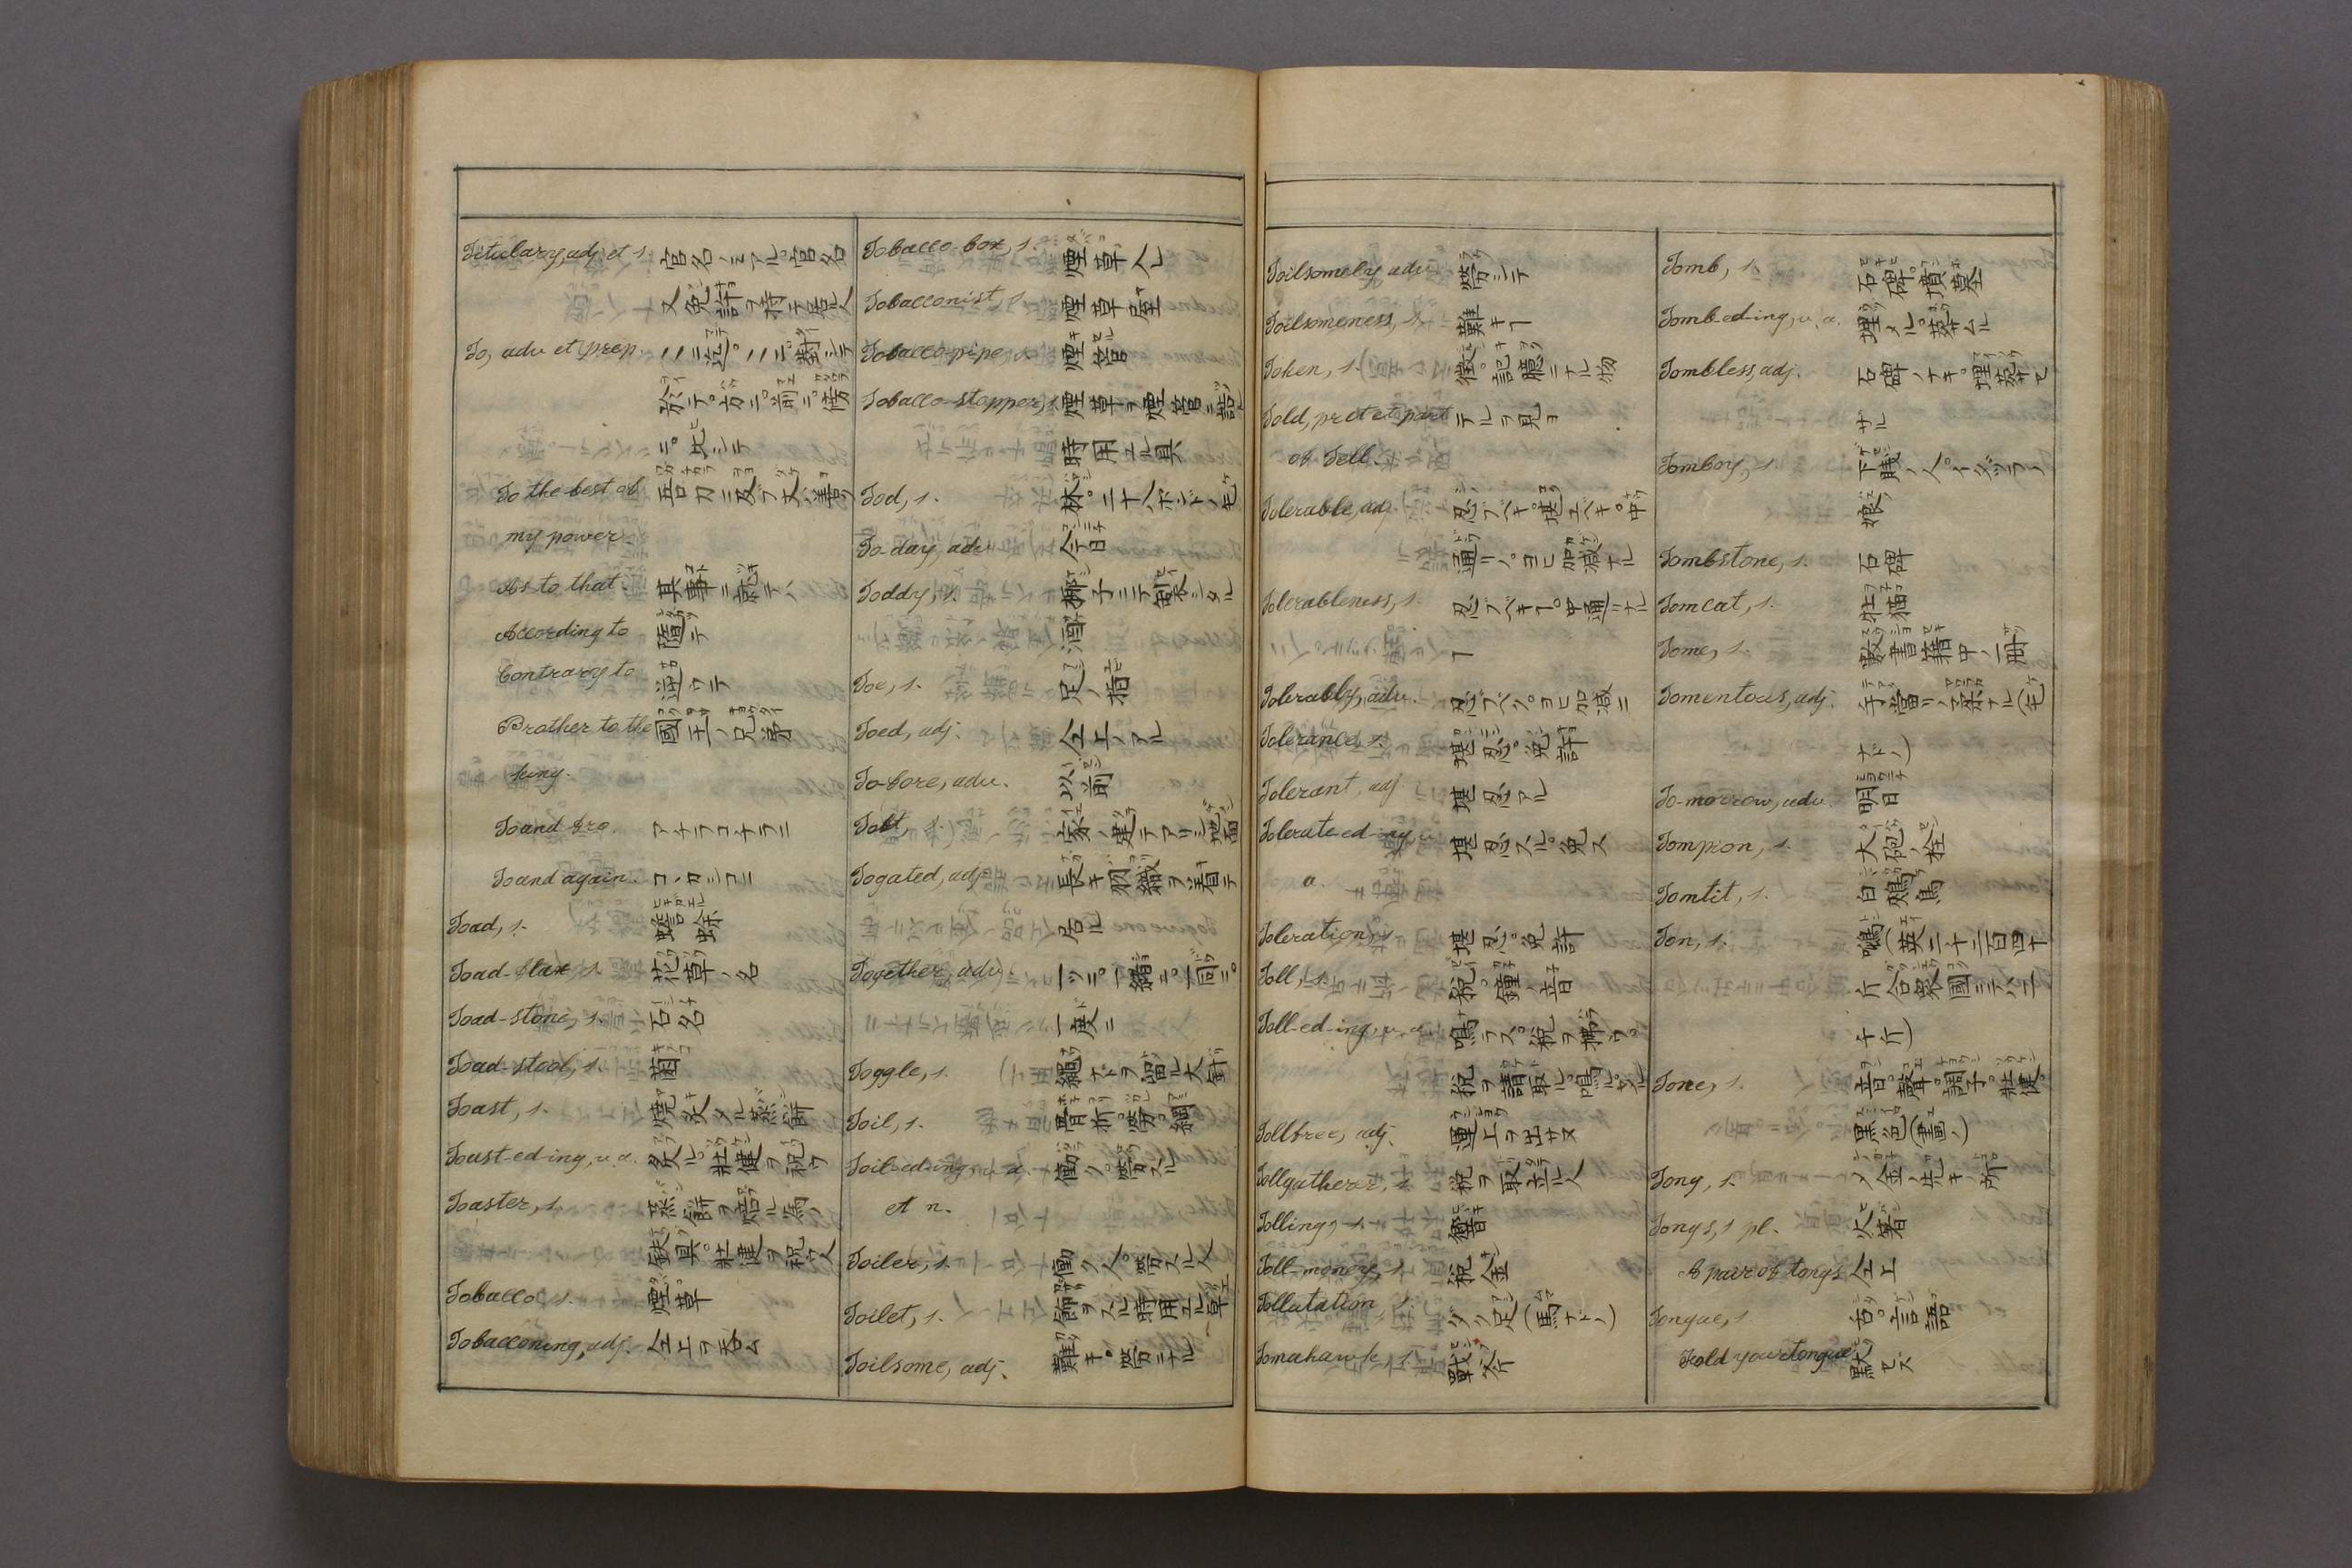 Titulary, adj et s. 官名ノミアル。官名
又免許ヲ持テ居ル人
To, adv et prep. ニ迄。ニ對シテ
於テ。方ニ。前ニ。傍
ニ。比シテ
To the best of 吾力ニ及ブ丈ハ善ク
my power.
As to that. 其事ニ就テハ
According to 随テ
Contrary to 逆ウテ
Brother to the 國王ノ兄弟
king.
To and fro. アチラコチラニ
To and again.
Toad, s. 蟾蜍
Toad-flax, s. 花草ノ名
Toad-stone, s. 石名
Toad-stool, s. 菌
Toast, s. 燒炙タル蒸餅
Toast-ed-ing, v. a. 炙ル。壯健ヲ祝フ
Toaster, s. 蒸餅ヲ焙ル為ノ
鉄具。壯健ヲ祝フ人
Tobacco, s. 煙草
Tobacconing, adj. 仝上ヲ呑ム
Tobacco-box, s. 煙草入レ
Tobacconist, s. 煙草屋
Tobacco-pipe, s. 煙管
Tobacco-stopper, s. 煙草ヲ煙管ニ詰ル
時用エル具
Tod, s.
To-day, adv. 今日
Toddy, s. 椰子ニテ製シタル
酒
Toe, s. 足ノ指
Toed, adj. 仝上ノアル
To-fore, adv. 以前
Toft, s. 家ノ建テアリシ地面
Togated, adj. 長キ羽織ヲ着テ
居ル
Together, adv. 一ツニ。一緒ニ。一同ニ。
一度ニ
Toggle, s. 繩ナドヲ留ル大針
Toil, s. 骨折。勞。網
Toil-ed-ing, v. a. 働ク。勞スル
et n.
Toiler, s. 働ク人。勞スル人
Toilet, s. 飾ヲスル時用エル卓
Toilsome, adj. 難キ。勞ニナル
Toilsomely, adv. 勞シテ
Toilsomeness, s. 難キヿ
Token, s. 徴。記憶ニナル物
Told, pret et part テルヲ見ヨ
of Tell.
Tolerable, adj. 忍ブベキ。堪エベキ。中
通リノ。ヨヒ加減ナル
Tolerableness, s. 忍ブベキヿ。中通リナル
ヿ
Tolerably, adv. 忍ブベク。ヨヒ加減ニ
Tolerance, s. 堪忍。免許
Tolerant, adj. 堪忍アル
Tolerate-ed-ing, v. 堪忍スル。免ス
a.
Toleration, s. 堪忍。免許
Toll, s. 税。鐘ノ音
Toll-ed-ing, v. a. 鳴ラス。税ヲ拂フ。
税ヲ請取ル。鳴ル。
Tollfree, adj. 運上ヲ出サヌ
Tollgatherer, s. 税ヲ取立ル人
Tolling, s. 響
Toll-money, s. 税金
Tollutation, s. ダク足(馬ナドノ)
Tomahawk, s. 戰斧
Tomb, s. 石碑。墳墓
Tomb-ed-ing, v. a. 埋メル。葬ムル
Tombless, adj. 石碑ノナキ。埋葬セ
サル
Tomboy, s. 下賎ノ人。イタヅラノ
娘
Tombstone, s. 石碑
Tomcat, s. 牡猫
Tome, s. 數書籍中ノ一冊
Tomentous, adj. 手當リノ柔ナル(毛
ナドノ)
To-morrow, adv. 明日
Tompion, s. 大砲ノ栓
Tomtit, s.
Ton, s. 噸(英二千二百四十
斤合衆國ニテハ二
千斤)
Tone, s. 音。聲。調子。壯健。
黒色(畫ノ)
Tong, s.
Tongs, s pl. 火箸
A pair of tongs 仝上
Tongue, s 舌。言語
Hold your tongue 黙セヨ